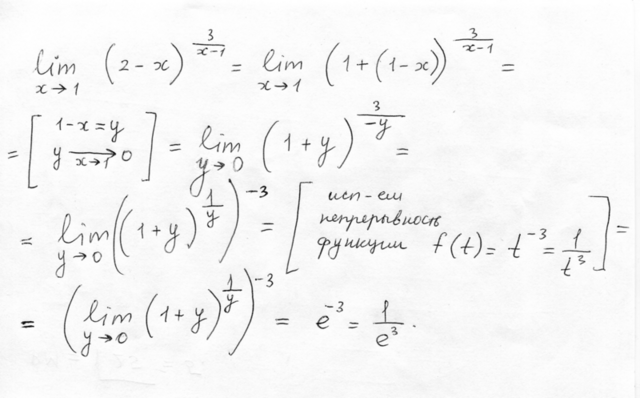 lim x→1 (2-x)^(3/(x-1)) = lim x→1 (1+(1-x))^(3/(x-1)) =
= [1-x=y y →x→1 0] = lim y→0 (1+y)^(3/(-y)) =
= lim y→0 ((1+y)^(1/y))^(-3) = [исп-ем
непрерывность
функции f(t) = t^(-3) = 1/t^3] =
= (lim y→0 (1+y)^(1/y))^(-3) = e^(-3) = 1/e^3.